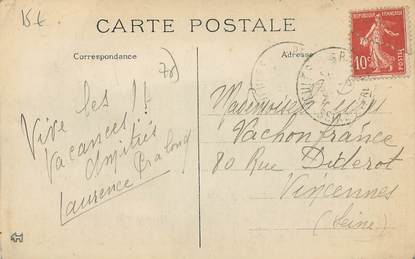 15 €
CARTE POSTALE
Correspondance
Adresse
78
REPUBLIQUE FRANÇAISE
10c
POSTES
Vive les
Vacances !!
Amitiés
Laurence
Mademoiselle
Vachonfrance
80 Rue Diderot
Vincennes
(Seine)